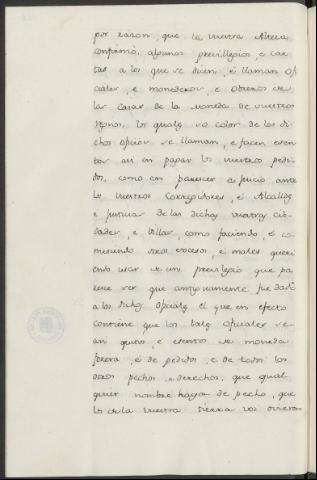 por razon, que la vuestra Alteza
confirmó, algunos previllegios, e car
tas, a los que se dicen, é llaman ofi
ciales, e monederos, e obreros de
las casas de la moneda de vuestros
Regnos, los quales so color de los di
chos oficios se llaman, e facen esen
tos asi en pagar los vuestros pedi
dos, como en parescer a juicio ante
los vuestros Corregidores, é Alcalldes
e justicias de las dichas vuestras cib
dades, e villas, como faciendo, é co
metiendo otros excesos, é males queri
endo usar de un previllegio que pa
resce ser que antiguamente fue dado
a los dichos oficiales el que en efecto
contiene que los tales oficiales se
an quitos, e esentos de moneda
forera, é de pedidos, e de todos los
otros pechos e derechos, que qual
quier nombre hayan de pecho, que
los de la vuestra tierra vos ovieren